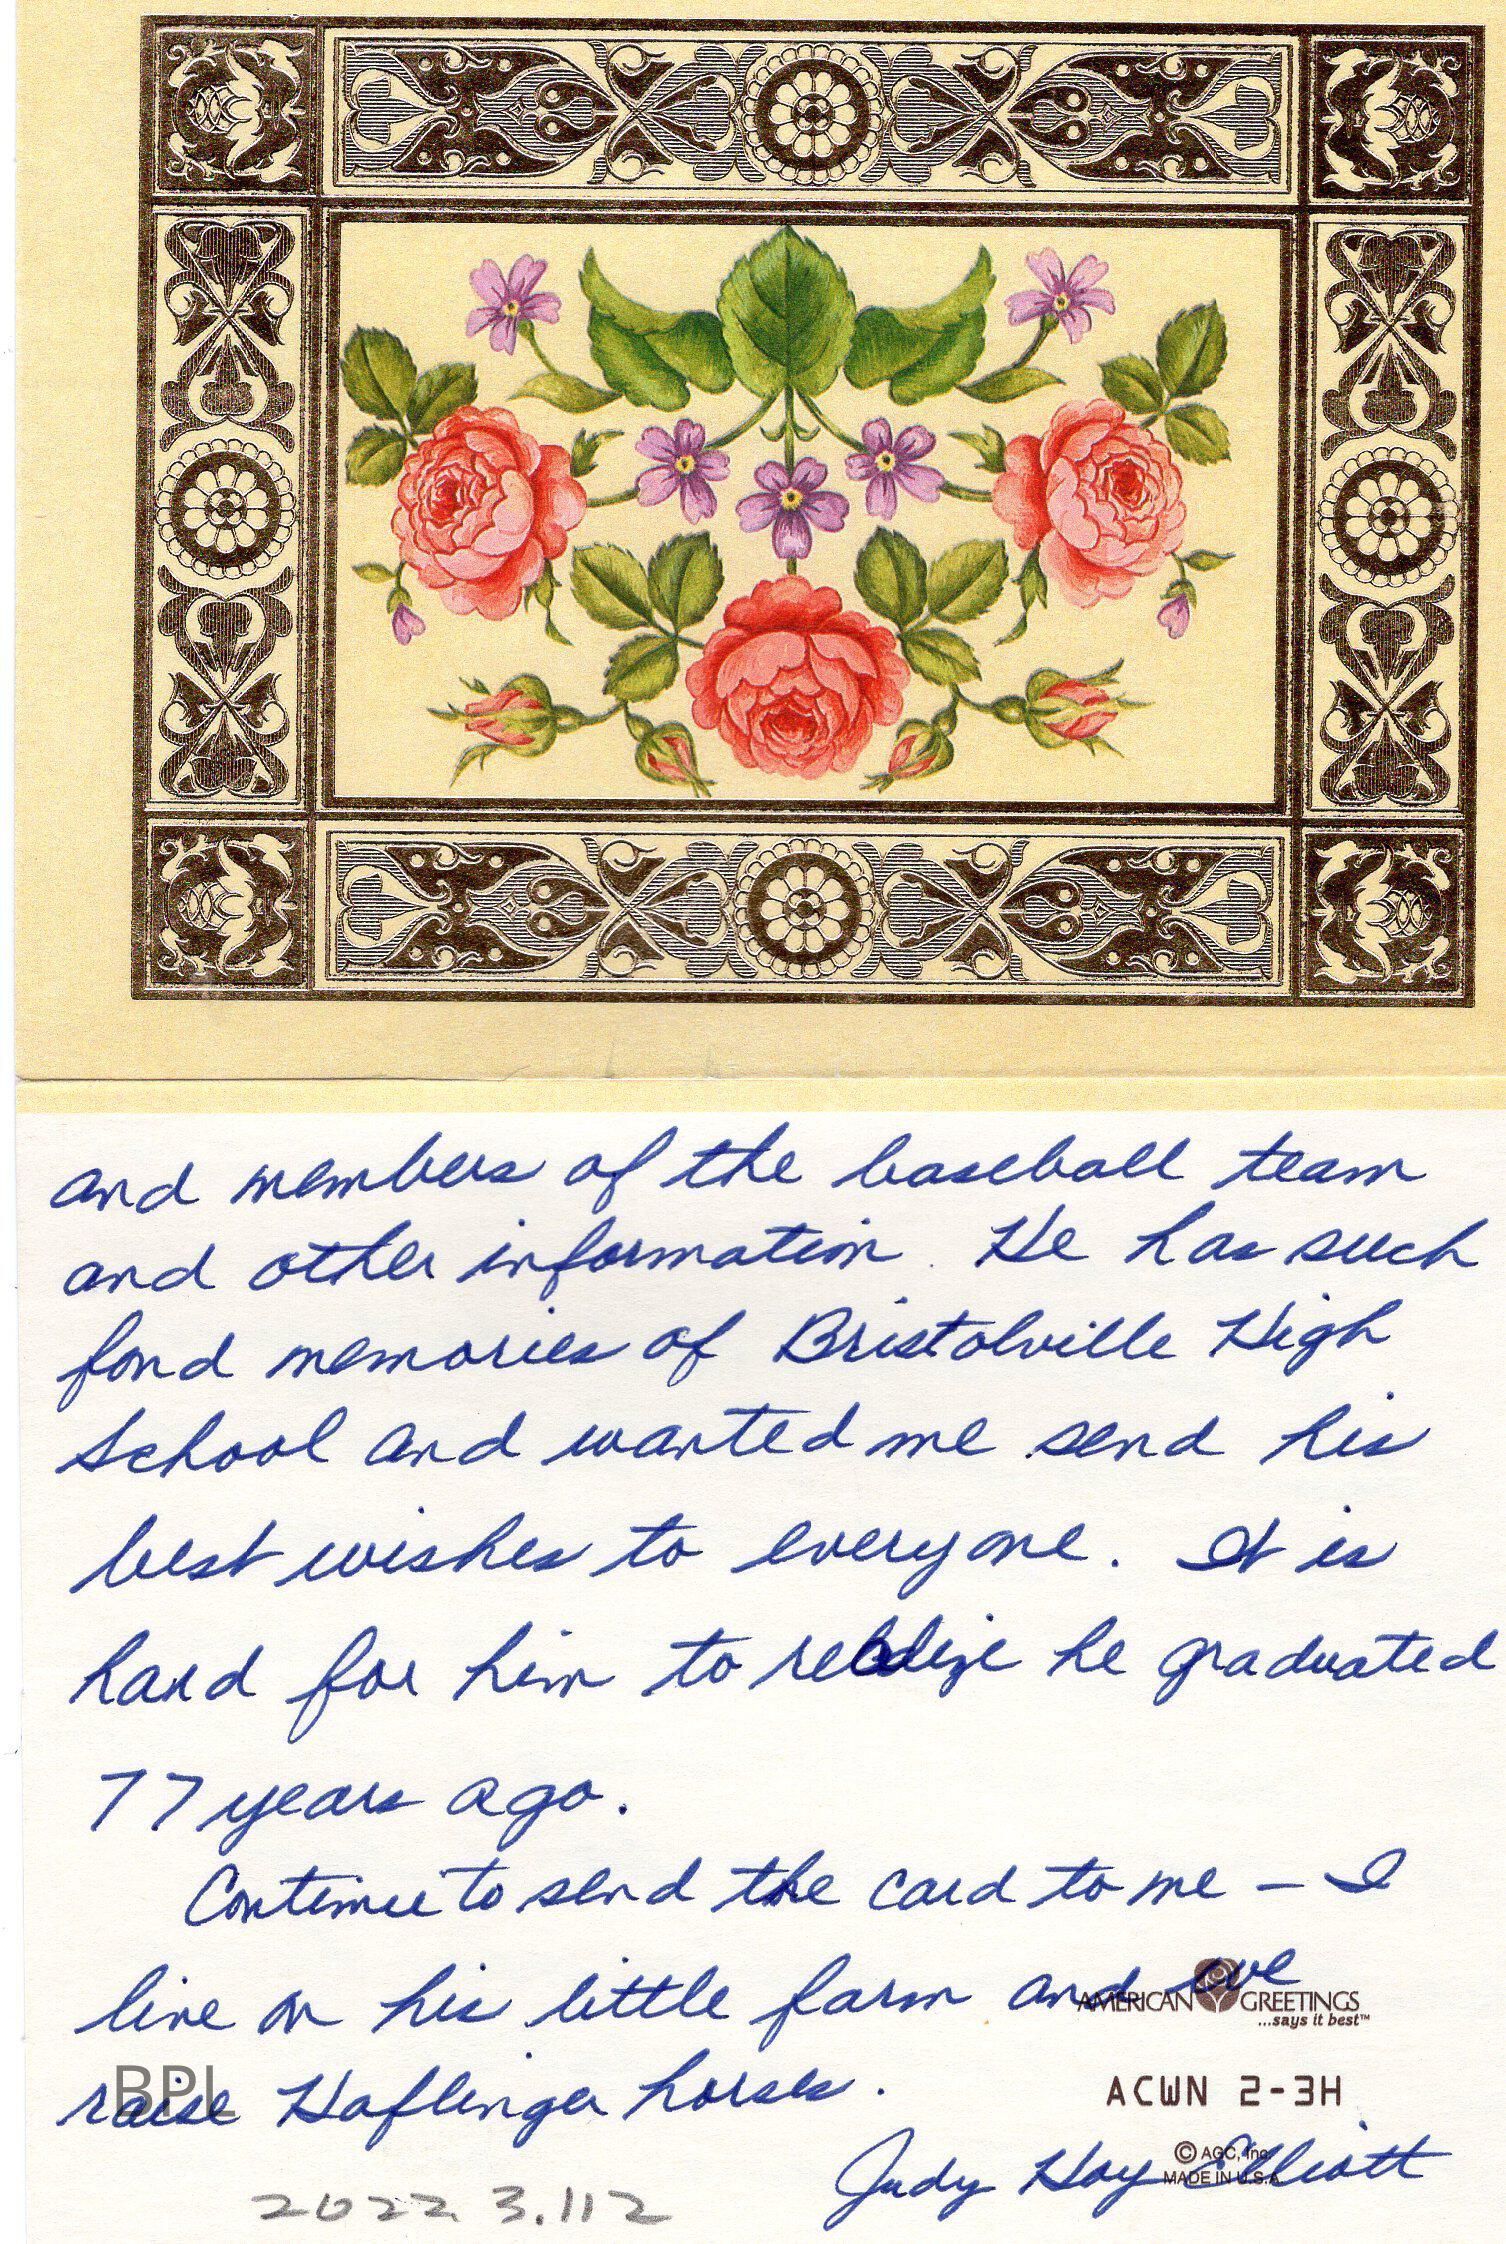 and members of the baseball team
and other information. He has such
fond memories of Bristolville High
School and wanted me send his
best wishes to everyone. It is
hard for him to realize he graduated
77 years ago.
Continue to send the card to me – I
live on his little farm and we
AMERICAN GREETINGS
...says it best™
raise Haflinger horses.
BPL
ACWN 2-3H
Judy Hoy Elliott
© AGC, Inc.
MADE IN U.S.A.
2022.3.112